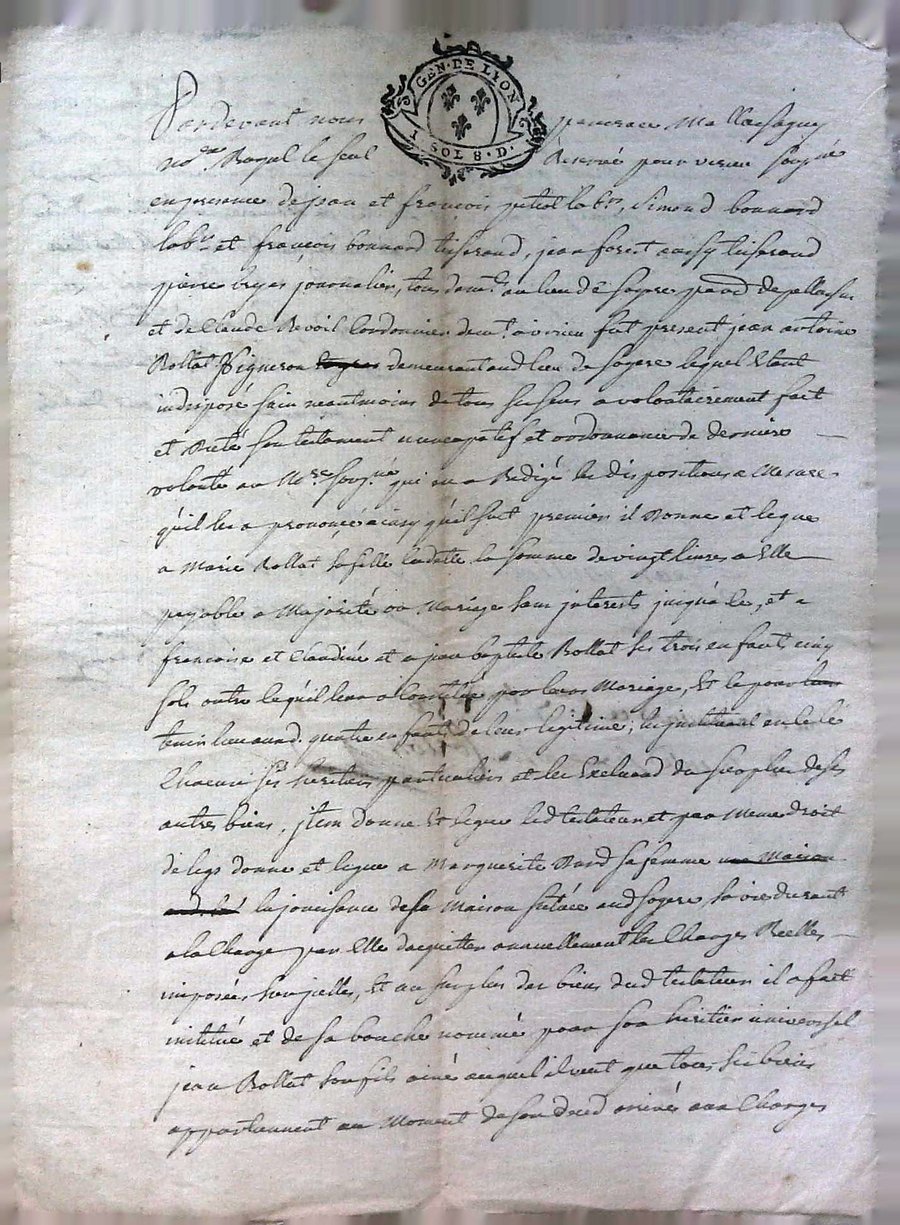 GEN·DE LION
1 SOL 8·D·
Pardevant nous
no.re Royal le seul Reservé pour vieux soussigné
en presence de jean et françois labr, Simond bonnard
labr et françois bonnard tisserand, jean forest aussy tisserand
pierre journalier, tous demt au lieu de soyere
et de Claude Revoil Cordonnier demt. fut present jean antoine
Rollat Vigneron demeurant aud lieu de soyere lequel Etant
indisposé sain neantmoins de tous ses sens a volontairement fait
et Dicté son testament nuncupatif et ordonnance de derniere
volonté au No.re soussigné qui en a Redigé les dispositions a Mesure
qu'il les a prononcé ainsy quil suit premier il Donne et legue
a Marie Rollat sa fille la somme de vingt livres a Elle
payable a Majorité ou Mariage sans jnterests jusqu'a le, et a
francoise et Claudine et a jean baptiste Rollat ses trois enfants cinq
sols outre ce qu'il leur a Constitué par leurs Mariage, Et ce pour
tenir lieu aud. quatre enfant de leur legitime; les jnstituant en ce
Chacun ses heritiers particuliers et les Excluand du surplus de ses
autres biens, jtem donne Et legue led testateur et par Meme droit
de legs donne et legue a Marguerite Bard sa femme une Maison
la jouissance de sa Maison scituée aud soyere sa vie durant
a la Charge par Elle dacquitter annuellement les Charges Reelles
imposées sur jcelles, Et au surplus des biens dud testateur il a fait
institué et de sa bouche nommé pour son heritier universel
jean Rollat son fils ainé auquel il veut que tous ses biens
appartiennent au Moment de son deced arrivé aux Charges